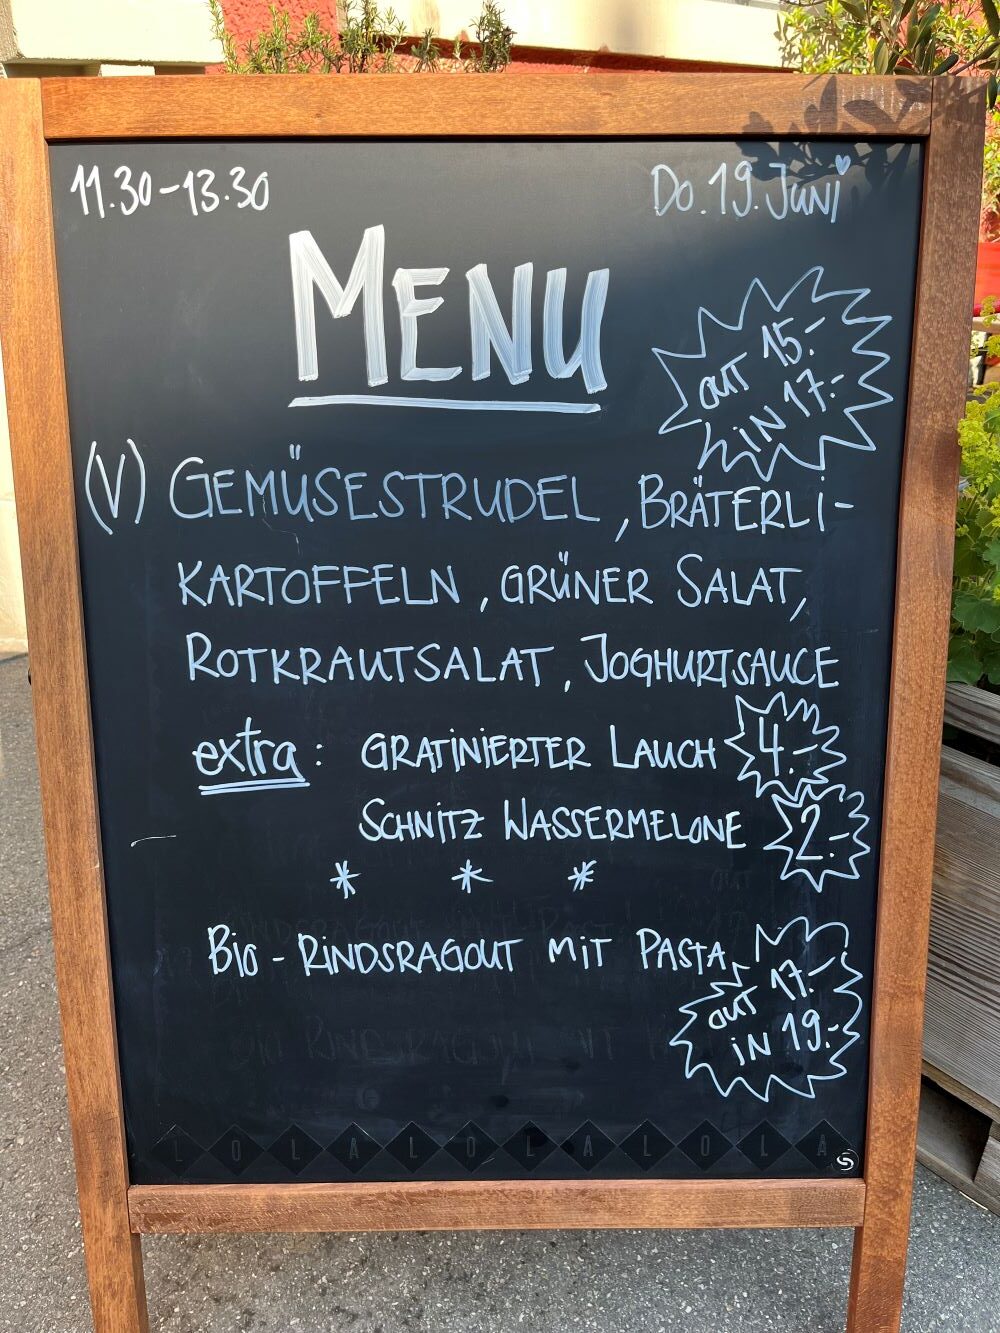 11.30-13.30
Do. 19. Juni
MENU
OUT 15.-
IN 17.-
(V) GEMÜSESTRUDEL, BRÄTERLI-
KARTOFFELN, GRÜNER SALAT,
ROTKRAUTSALAT, JOGHURTSAUCE
extra: GRATINIERTER LAUCH 4.-
SCHNITZ WASSERMELONE 2.-
* * *
BIO-RINDSRAGOUT MIT PASTA
OUT 17.-
IN 19.-
LOLALOLALOLA